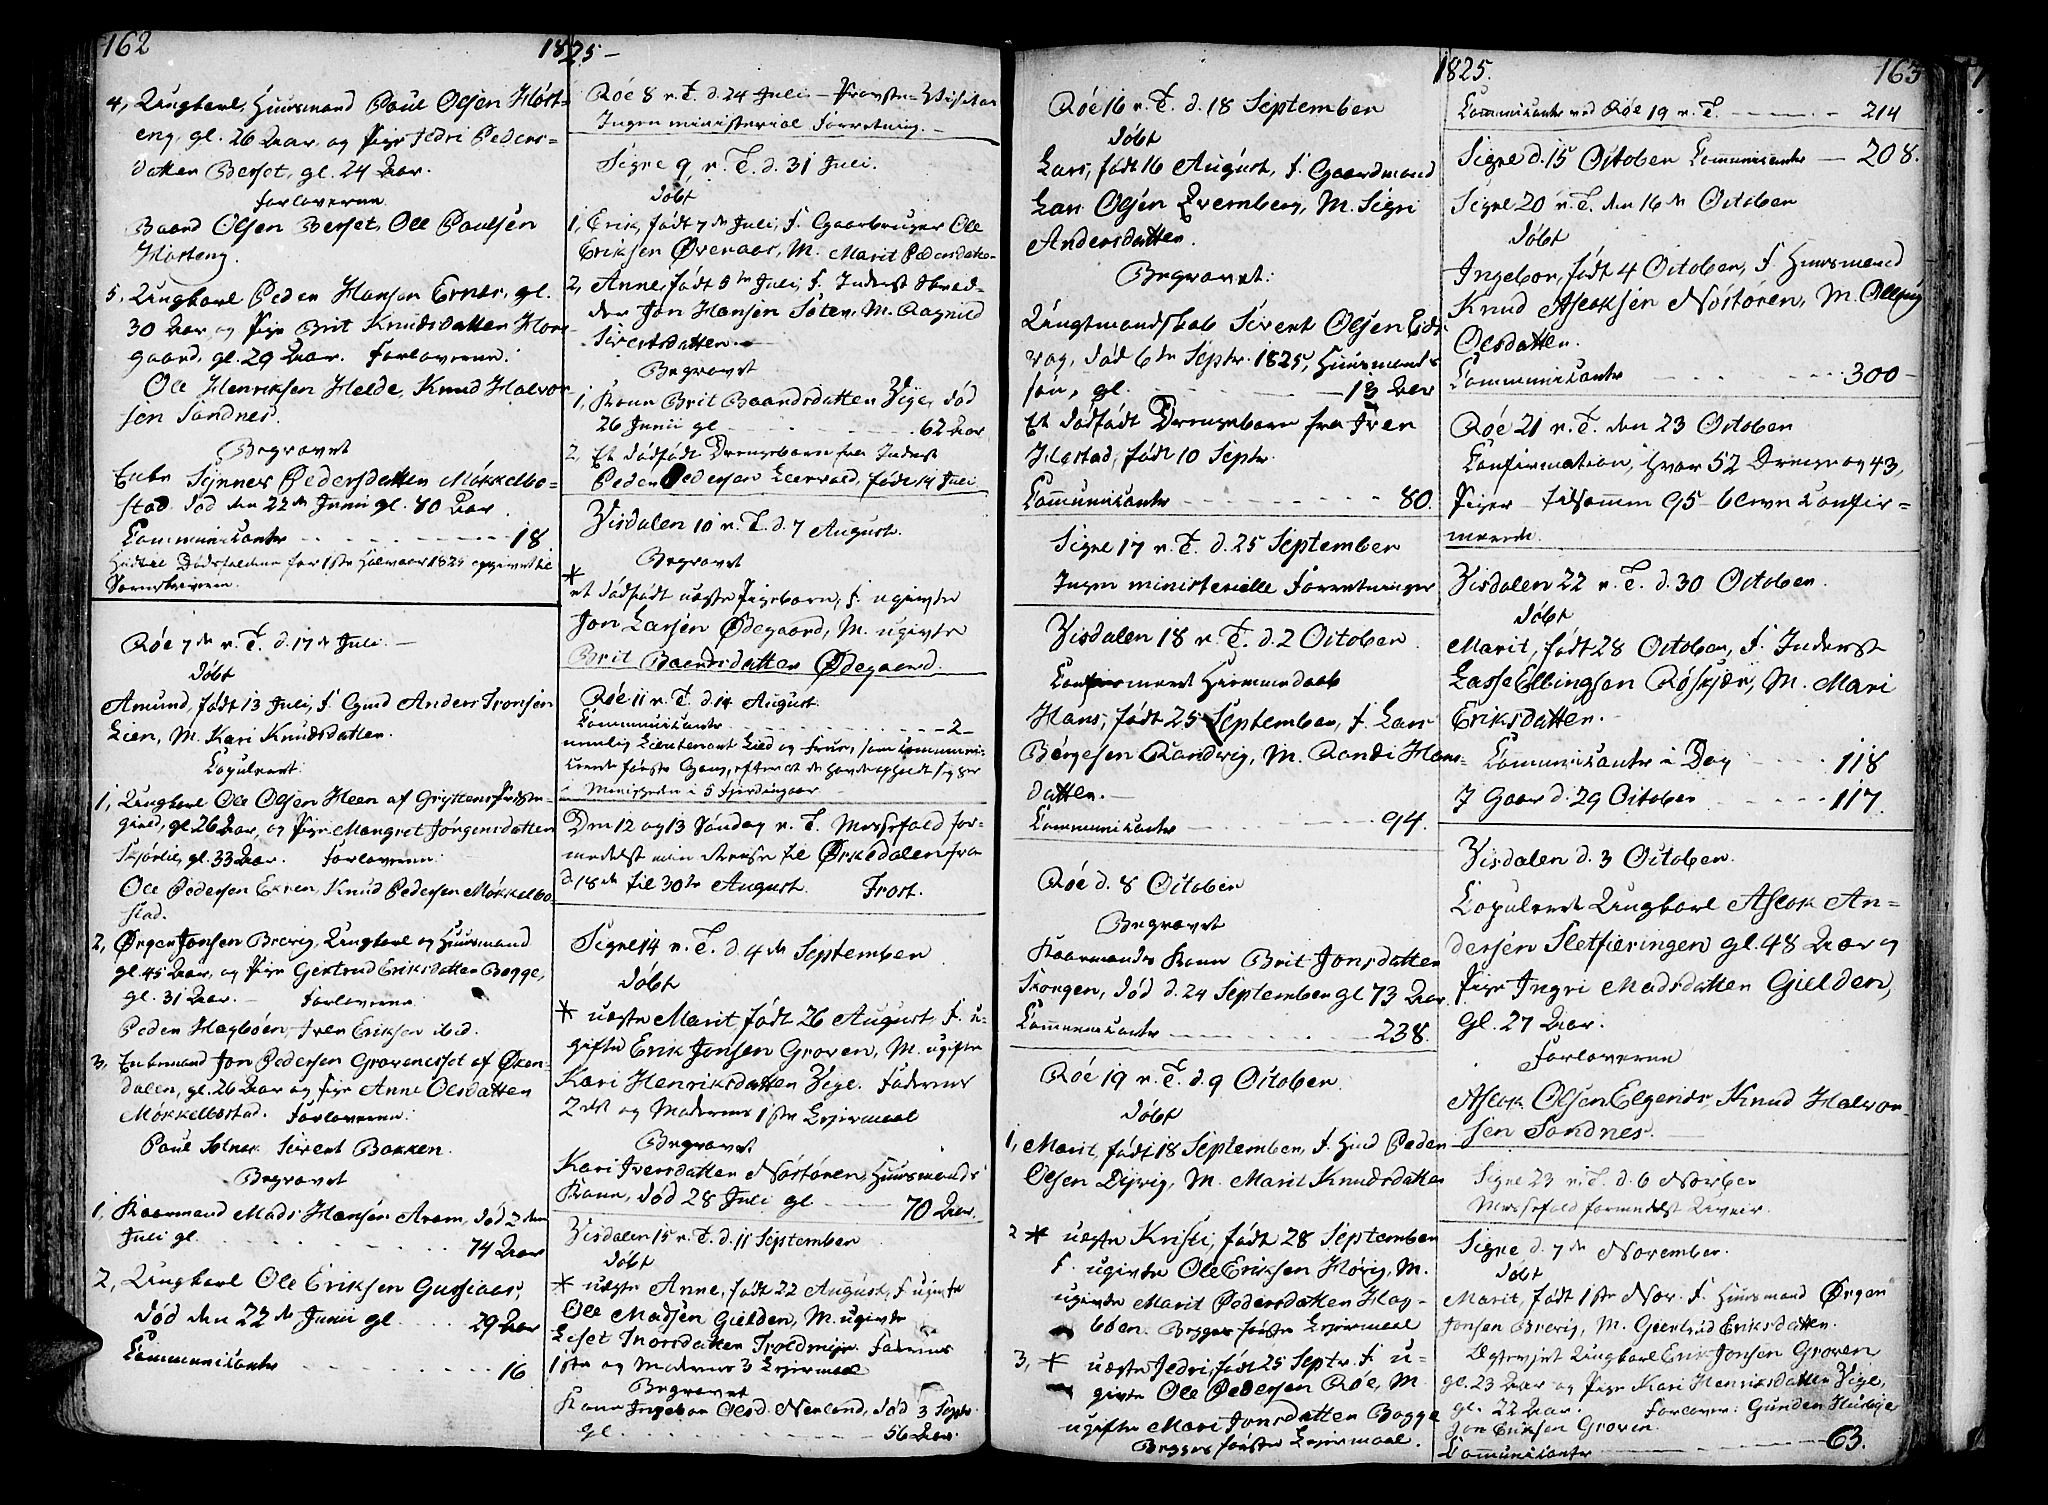 162
1825-
4, Ungkarl, Huusmand Paul Olsen Hørst-
eng, gl. 26 Aar, og Pige Sedri Peders-
datter Berset, gl. 24 Aar.
Forloverne
Baard Olsen Berset, Ole Paulsen
Hørsteng.
5, Ungkarl Peder Hansen Ernes, gl.
30 Aar og Pige Brit Knudsdatter Hors-
gaard, gl. 29 Aar. Forloverne:
Ole Henriksen Helde, Knud Halvor-
sen Sandnes.
Begravet
Enke Synnev Pedersdatter Møkkelbo-
stad. Død den 22de Junii gl. 40 Aar.
Communicanter - - - 18
Hidtil Dødsfaldene for 1ste Halvaar 1825 opgivet til
Sorenskriveren.
Røe 7de n. T. d. 17de Juli.
Døbt
Amund, født 13 Juli, F. Gmd Anders Tronsen
Lien, M. Kari Knudsdatter.
Copuleret:
1, Ungkarl Ole Olsen Heen af Gryttens Præste-
gield, gl. 26 Aar, og Pige Margret Jørgensdatter
Skjørlie, gl. 33 Aar. Forloverne:
Ole Pedersen Ekren, Knud Pedersen Møkkelbo-
stad.
2, Ørgen Jonsen Brevig, Ungkarl og Huusmand
gl. 45 Aar, og Pige Giertrud Eriksdatter Bogge,
gl. 31 Aar. - Forloverne:
Peder Hagbøen, Iver Eriksen ibid.
3, Enkemand Jon Pedersen Grovenesset af Øxen-
dalen, gl. 26 Aar og Pige Anne Olsdatter
Møkkelbostad. Forloverne:
Paul Solnør Sivert Bakken.
Begravet
1, Kaarmand Mads Hansen Aram, død 2den
Juli gl. - - - 74 Aar
2, Ungkarl Ole Eriksen Gussiaas,
død den 22de Junii gl. - - 29 Aar
Communicanter - - - 16
Røe 8 n. T. d. 24 Juli - Provste-Visitas
Ingen ministerial Forretning.
Signe 9, n. T. d. 31 Juli.
Døbt
1, Erik, født 7de Juli, F. Gaardbruger Ole
Eriksen Øveraas, M. Marit Pedersdatter
2, Anne, født 5te Juli, F. Inderst Skræd-
der Jon Hansen Toten, M. Ragnild
Sivertsdatter.
Begravet
1, Kone Brit Baardsdatter Vige, død
26 Junii gl - - - 62 Aar
2, Et dødfødt Drengebarn fra Inderst
Peder Pedersen Leervold, født 14 Juli
Visdalen 10 n. T. d. 7 August.
Begravet
* et dødfødt uægte Pigebarn, F. ugivte
Jon Larsen Ødegaard, M. ugivte
Brit Baardsdatter Ødegaard.
Røe 11 n. T. d. 14 August.
Communicanter - - - 2 -
nemlig Lieutenant Lied og Frue, som communi-
cerede første Gang, efterat de havde opholdt sig her
i Menigheden i 5 Fjerdingaar
Den 12 og 13 Søndag n. T. Messefald for-
medelst min Reise til Ørkedalen fra
d. 18de til 30te August. Frost.
Signe 14 n. T. d. 4de September
Døbt
* uægte Marit, født 26 August, F. u-
gifte Erik Jonsen Groven, M. ugifte
Kari Henriksdatter Vige. Faderens
2det og Moderens 1ste Leiermaal
Begravet
Kari Iversdatter Nøstøren, Huusmands
Kone, død 28 Juli gl - - 70 Aar.
Visdalen 15 n. T. d. 11 September
Døbt
* uægte Anne, født 22 August, F. ugivte
Ole Madsen Gielden, M. ugivte
Liset Thorsdatter Troldmyr. Faderens
1ste og Moderens 3 Leiermaal
Begravet
Kone Ingebor Olsd. Nerland, død 3 Septr.
gl - - - 56 Aar.
1825.
163
Røe 16 n. T. d. 18 September
Døbt
Lars, født 16 August, F. Gaardmand
Lars Olsen Evernberg, M. Sigri
Andersdatter.
Begravet:
Ungtmandskab Sivert Olsen Eids-
vag, død 6te Septr. 1825, Huusmands
søn, gl. - - - 13 Aar
Et dødfødt Drengebarn fra Iver
Horstad, født 10 Septr
Communicanter - - - 80.
Signe 17 n. T. d. 25 September
Ingen ministerielle Forretninger
Visdalen 18 n. T. d. 2 October
Confirmeret Hiemmedøbt
Hans, født 25 September, F. Lars
Børgesen Randvig, M. Randi Hans-
datter.
Communicanter - - - 94.
Røe d. 8 October
Begravet
Kaarmandes Kone Brit Jonsdatter
Skorgen, død d. 24 September gl 73 Aar.
Communicanter - - - 238.
Røe 19 n. T. d. 9 October.
Døbt
1, Marit, født 18 September, F. Hmd Peder
Olsen Dyrvig, M. Marit Knudsdatter
2 * uægte Kristi, født 28 September
F. ugivte Ole Eriksen Hørig, M.
ugivte Marit Pedersdatter Hag-
bøen. Begges første Leiermaal
3, * uægte Sedri, født 25 Septr. F. u-
givte Ole Pedersen Røe, M.
ugifte Mari Jonsdatter Bogge
Begges første Leiermaal.
Communicanter ved Røe 19 n. T. - - - 214
Signe d. 15 October Communicanter - 208.
Signe 20 n. T. den 16de October
Døbt
Ingebor, født 4 October, F. Huusmand
Knud Aslaksen Nøstøren, M. Olløug
Olsdatter.
Communicanter - - - 300 -
Røe 21 n. T. den 23 October
Confirmation, hvor 52 Drenge og 43,
Piger - tilsammen 95 - bleve Confir-
merede.
Visdalen 22 n. T. d. 30 October.
Døbt
Marit, født 28 October, F. Inderst
Lasse Ellingsen Røskjær, M. Mari
Eriksdatter.
Communicanter i Dag - - - 118
I Gaar d. 29 October - - - 117.
Visdalen d. 3 October.
Copuleret Ungkarl Aslak An-
dersen Sletfieringen gl. 48 Aar og
Pige Ingri Madsdatter Gielden,
Gl. 27 Aar.
Forloverne
Aslak Olsen Elgenes, Knud Halvor-
sen Sandnes.
Signe 23 n. T. d. 6 November
Messefald formedelst Uveir.
Signe d. 7de November.
Døbt
Marit, født 1ste Nov. F. Huusmand Ørgen
Jonsen Brevig, M. Giertrud Eriksdatter.
Ægteviet Ungkarl Erik Jonsen Groven
gl. 23 Aar og Pige Kari Henriksdatter Vige,
gl. 22 Aar. Forlover: Gunder Husbye
Jon Eriksen Groven.
Communicanter - - - 63.